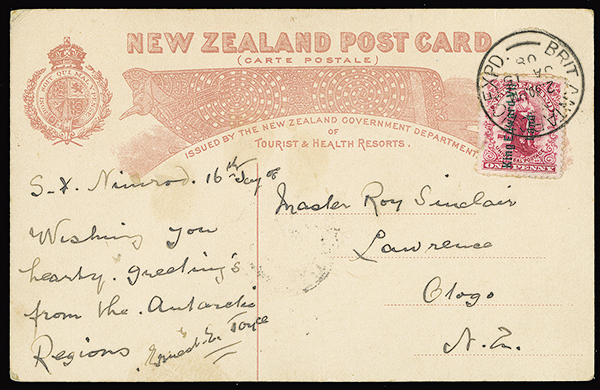 NEW ZEALAND POST CARD.
(CARTE POSTALE)
HONI SOIT QUI MAL Y PENSE
ISSUED BY THE NEW ZEALAND GOVERNMENT DEPARTMENT
OF
TOURIST & HEALTH RESORTS.
BRIT. ANTARC. EXPD.
JA
08
King Edward VII
Land
ONE PENNY
S-Y. Nimrod. 16th Day of
Wishing you
hearty. greeting's
from the. Antarctic
Regions.
Ernest. E. Joyce
Master Roy Sinclair
Lawrence
Otogo
N.Z.